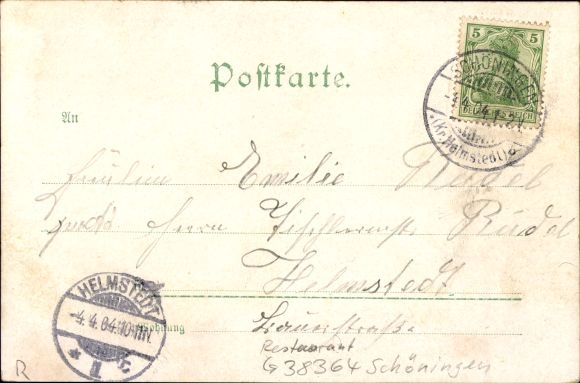 Postkarte.
5
SCHÖNINGEN
(Kr. Helmstedt)
An
Fräulein Emilie Rudel
Herrn Tischlermstr. Rudel
Helmstedt
HELMSTEDT
4.4.04.10-11N.
straße.
Restaurant
R
G 38364 Schöningen